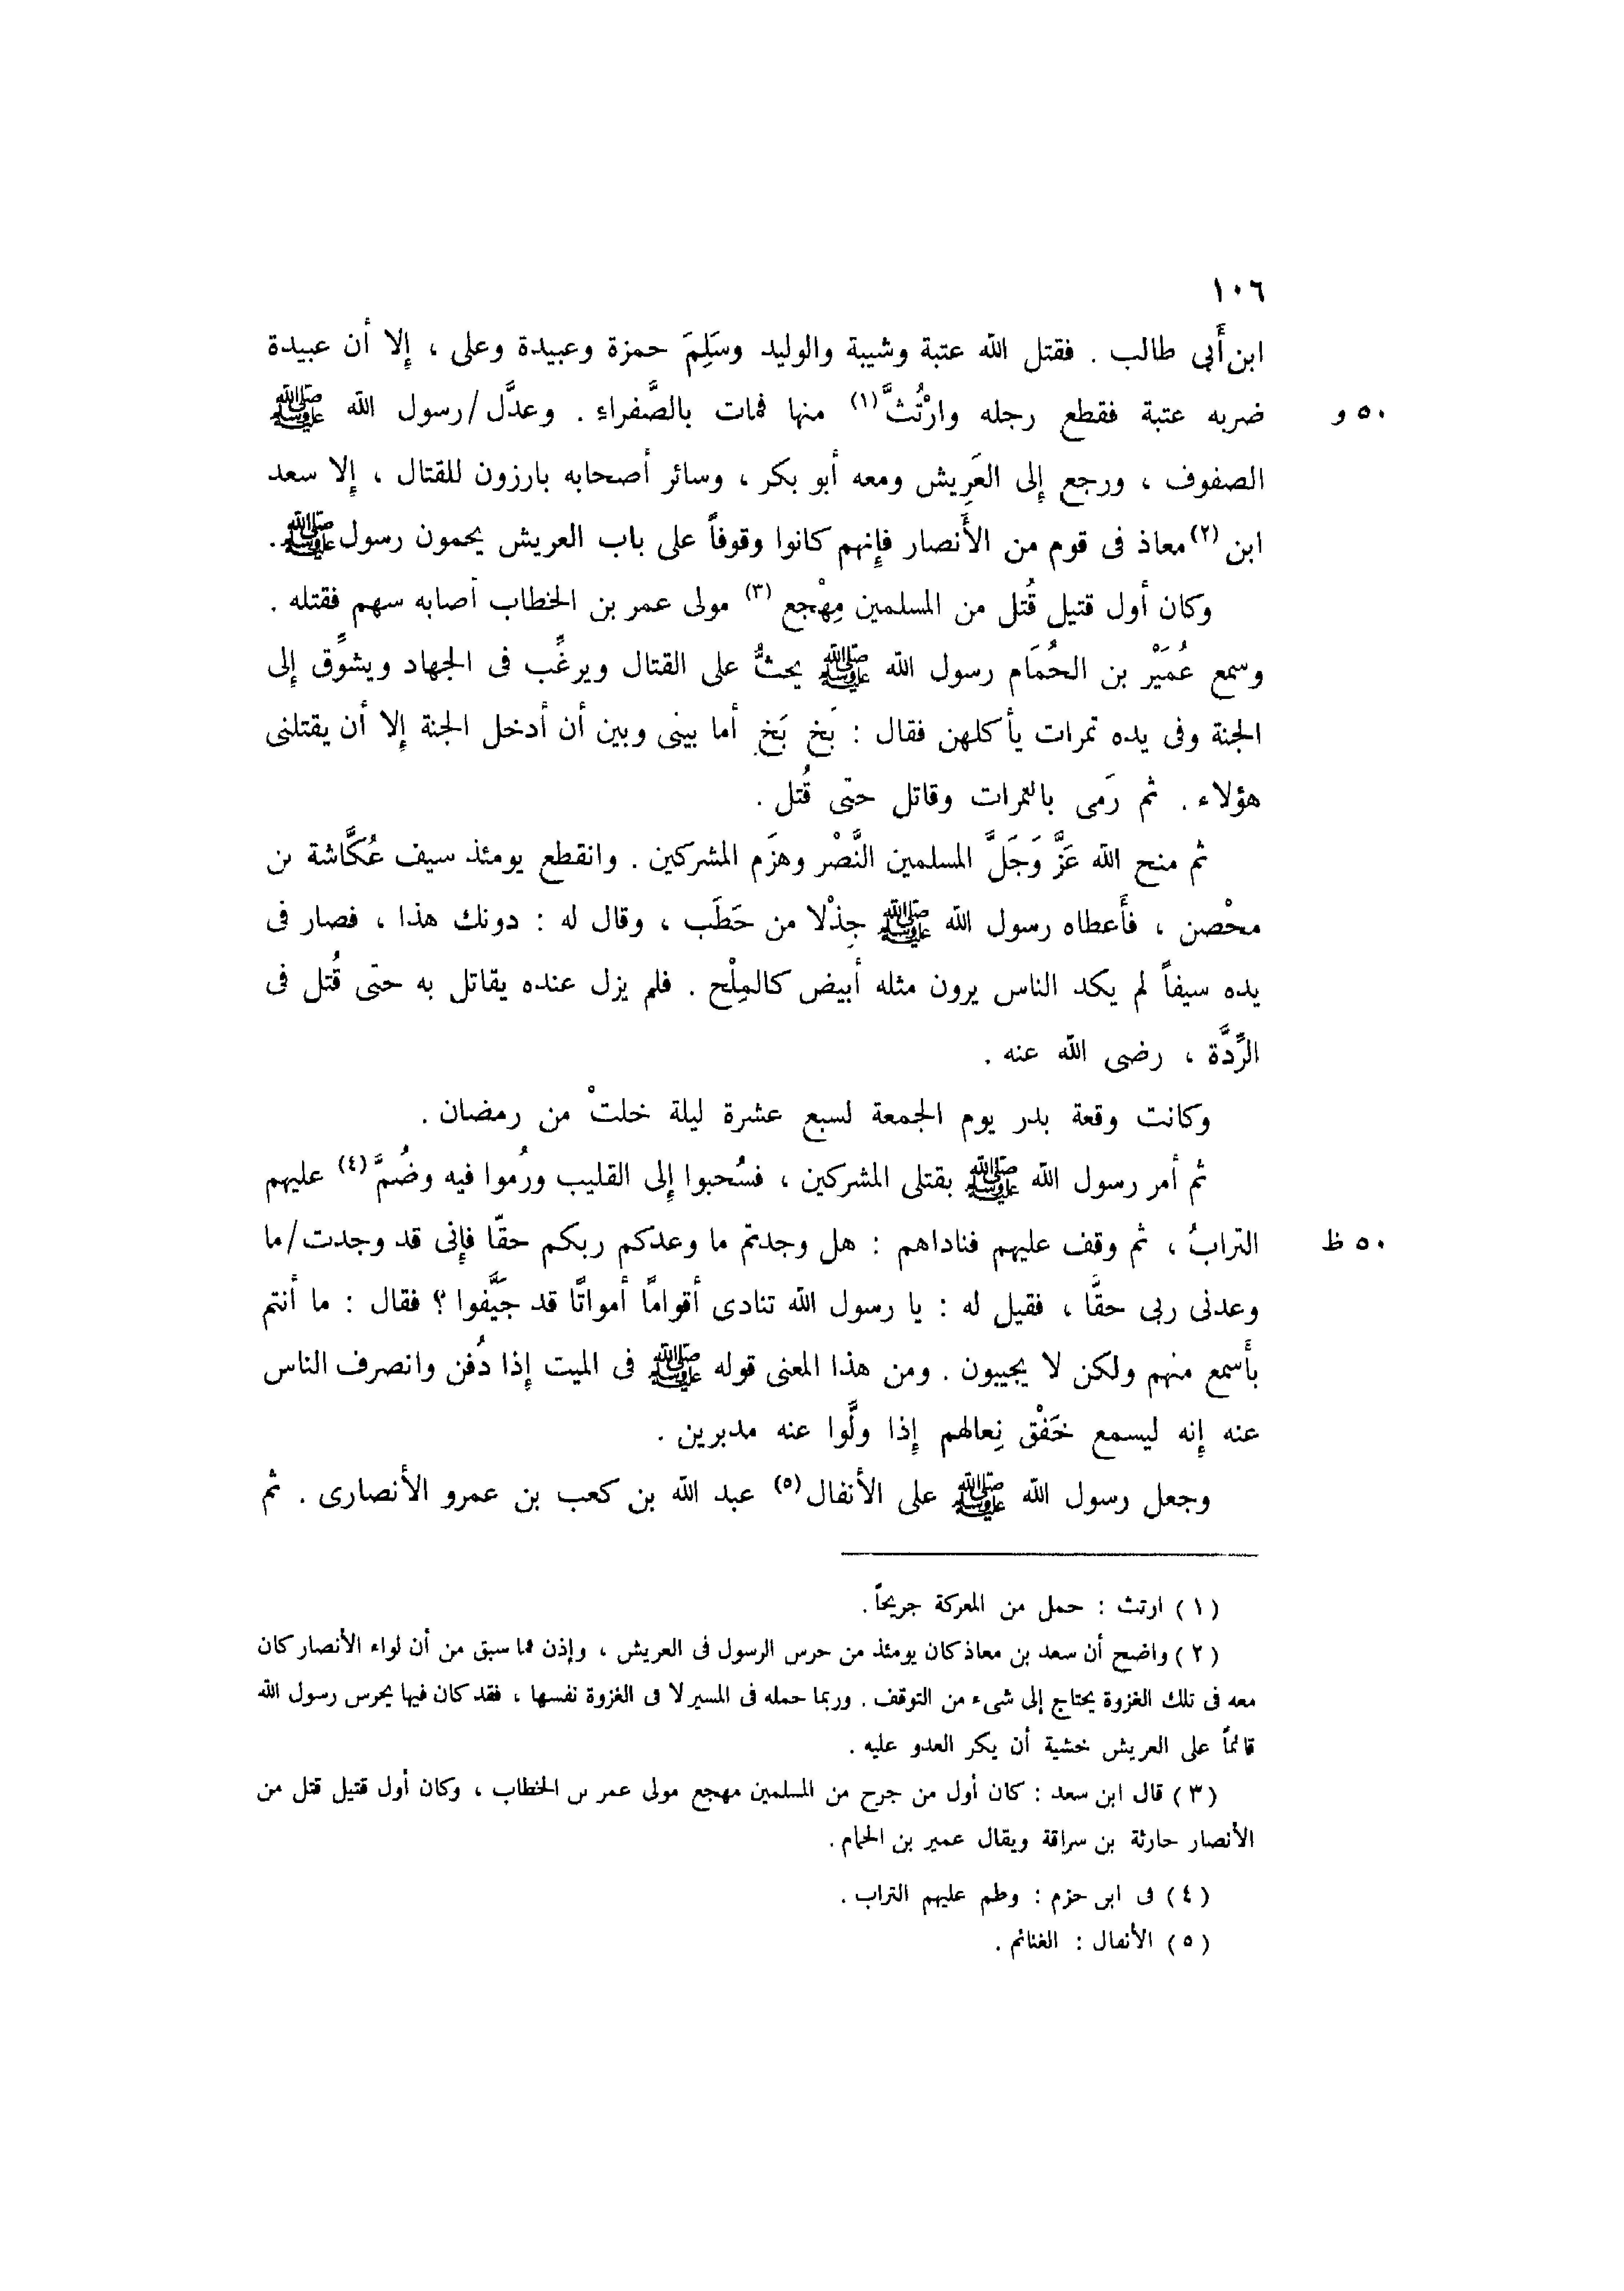 ١٠٦
ابن أَبى طالب . فقتل الله عتبة وشيبة والوليد وسَلِمَ حمزة وعبيدة وعلى ، إِلا أن عبيدة
ضربه عتبة فقطع رجله وارْتُثَّ(١) منها فمات بالصَّفراءِ . وعدَّل/رسول الله ﷺ ٥٠ و
الصفوف ، ورجع إِلى العَرِيش ومعه أبو بكر ، وسائر أصحابه بارزون للقتال ، إِلا سعد
ابن (٢) معاذ فى قوم من الأَنصار فإِنهم كانوا وقوفاً على باب العريش يحمون رسول ﷺ .
وكان أول قتيل قُتل من المسلمين مِهْجع (٣) مولى عمر بن الخطاب أصابه سهم فقتله .
وسمع عُمَيْر بن الحُمَام رسول الله ﷺ يحثُّ على القتال ويرغِّب فى الجهاد ويشوِّق إلى
الجنة وفى يده تمرات يأكلهن فقال : بَخ بَخ أما بينى وبين أن أدخل الجنة إلا أن يقتلنى
هؤلاء . ثم رَمى بالتمرات وقاتل حتى قُتل .
ثم منح الله عَزَّ وَجَلَّ المسلمين النَّصْر وهزَم المشركين . وانقطع يومئذ سيف عُكَّاشة بن
محْصن ، فأَعطاه رسول الله ﷺ جِذْلا من حَطَب ، وقال له : دونك هذا ، فصار فى
يده سيفاً لم يكد الناس يرون مثله أبيض كالمِلْح . فلم يزل عنده يقاتل به حتى قُتل فى
الرِّدَّة ، رضى الله عنه .
وكانت وقعة بدر يوم الجمعة لسبع عشرة ليلة خلتْ من رمضان .
ثم أمر رسول الله ﷺ بقتلى المشركين ، فسُحبوا إِلى القليب ورُموا فيه وضُمَّ (٤) عليهم
الترابُ ، ثم وقف عليهم فناداهم : هل وجدتم ما وعدكم ربكم حقّا فإِنى قد وجدت/ما ٥٠ ظ
وعدنى ربى حقًّا ، فقيل له : يا رسول الله تنادى أقواماً أمواتًا قد جَيَّفوا ؟ فقال : ما أنتم
بأَسمع منهم ولكن لا يجيبون . ومن هذا المعنى قوله ﷺ فى الميت إِذا دُفن وانصرف الناس
عنه إِنه ليسمع خَفْق نِعالهم إِذا ولَّوا عنه مدبرين .
وجعل رسول الله ﷺ على الأنفال (٥) عبد الله بن كعب بن عمرو الأنصارى . ثم
( ١ ) ارتث : حمل من المعركة جريحاً .
( ٢ ) واضح أن سعد بن معاذ كان يومئذ من حرس الرسول فى العريش ، وإذن فما سبق من أن لواء الأنصار كان
معه فى تلك الغزوة يحتاج إلى شىء من التوقف . وربما حمله فى المسير لا فى الغزوة نفسها ، فقد كان فيها يحرس رسول الله
قائماً على العريش خشية أن يكر العدو عليه .
( ٣ ) قال ابن سعد : كان أول من جرح من المسلمين مهجع مولى عمر بن الخطاب ، وكان أول قتيل قتل من
الأنصار حارثة بن سراقة ويقال عمير بن الحمام .
( ٤ ) فى ابن حزم : وطم عليهم التراب .
( ٥ ) الأنفال : الغنائم .